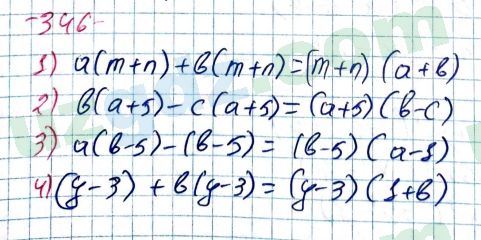 -346-
1) a(m+n)+b(m+n)=(m+n) (a+b)
2) b(a+5)-c(a+5)=(a+5)(b-c)
3) a(b-5)-(b-5)= (b-5)(a-1)
4) (y-3) + b(y-3)=(y-3)(1+b)